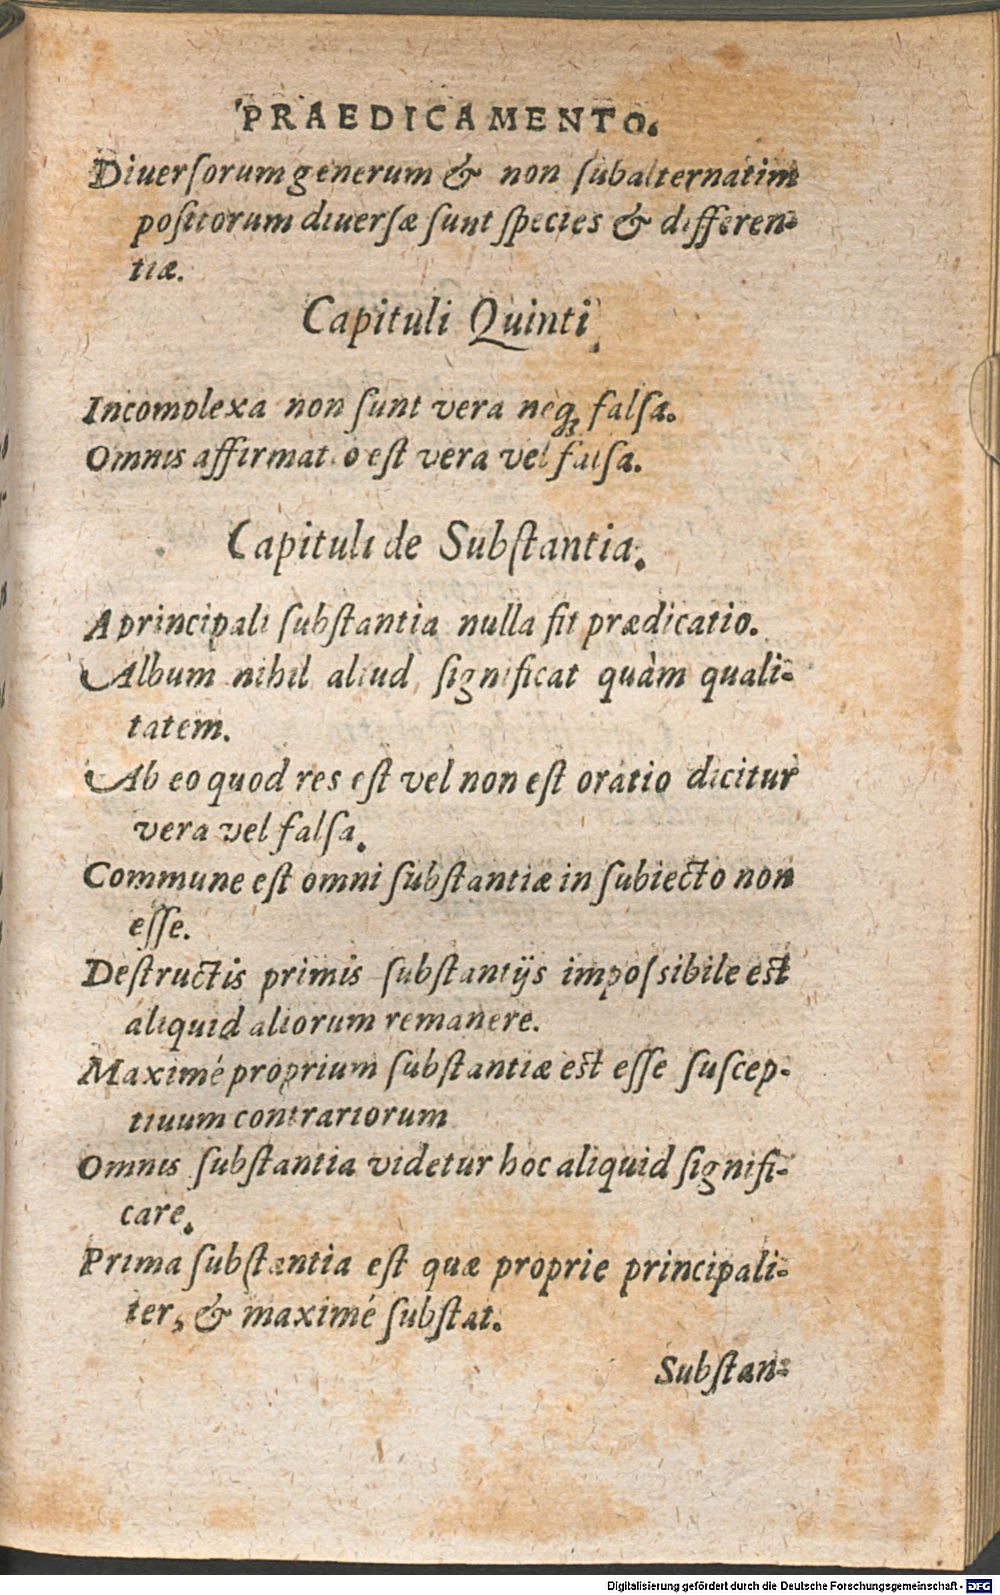 PRAEDICAMENTO.
Diuerſorum generum & non ſubalternatim
poſitorum diuerſæ ſunt ſpecies & differen-
tiæ.
Capituli Quinti.
Incomplexa non ſunt vera neqꝫ falſa.
Omnis affirmatio eſt vera vel falſa.
Capituli de Subſtantia.
A principali ſubſtantia nulla fit prædicatio.
Album nihil aliud ſignificat quàm quali-
tatem.
Ab eo quod res eſt vel non eſt oratio dicitur
vera vel falſa.
Commune eſt omni ſubſtantiæ in ſubiecto non
eſſe.
Deſtructis primis ſubſtantijs impoſsibile eſt
aliquid aliorum remanere.
Maximé proprium ſubſtantiæ eſt eſſe ſuſcep-
tiuum contrariorum
Omnis ſubſtantia videtur hoc aliquid ſignifi-
care.
Prima ſubſtantia eſt quæ proprie principali-
ter, & maximé ſubſtat.
Subſtan-
Digitalisierung gefördert durch die Deutsche Forschungsgemeinschaft - DFG